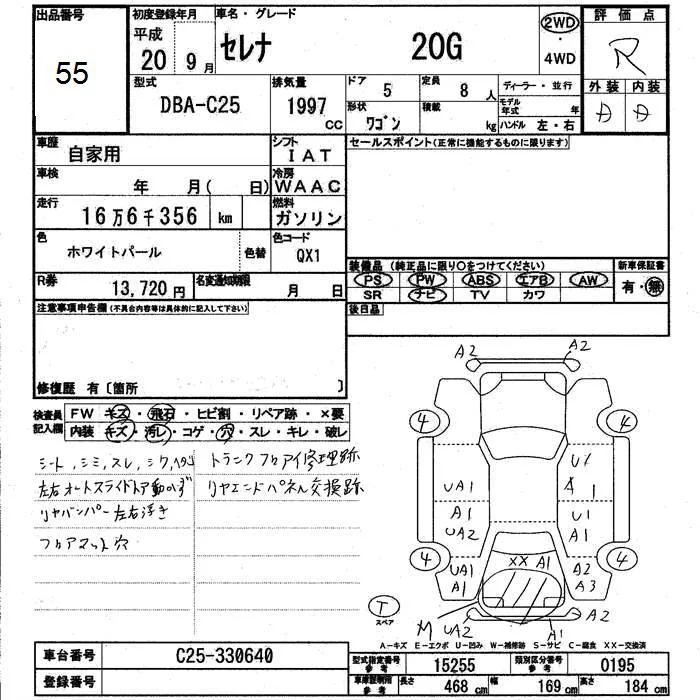 出品番号
55
初度登録年月
平成
20 9月
車名・グレード
セレナ 20G
2WD
・
4WD
評価点
R
外装 内装
D D
型式
DBA-C25
排気量
1997
CC
ドア
5
定員
8人
形状
ワゴン
積載
kg
ディーラー・並行
モデル年式 年
ハンドル 左・右
車歴
自家用
シフト
IAT
車検
年 月( 日)
冷房
WAAC
走行
16万6千356 km
燃料
ガソリン
色
ホワイトパール
色替
色コード
QX1
R券
13,720円
名変通知期限
月 日
セールスポイント(正常に機能するものに限ります)
装備品(純正品に限り○をつけてください)
PS PW ABS エアB AW
SR ナビ TV カワ
新車保証書
有・無
後日品
注意事項申告欄(不具合内容等は具体的に記入して下さい)
修復歴 有〔箇所 〕
検査員
記入欄
FW キズ・飛石・ヒビ割・リペア跡・×要
内装 キズ・汚れ・コゲ・穴・スレ・キレ・破レ
シート,シミ,スレ,
左右オートスライドドア動かず
リヤバンパー左右浮き
フロアマット穴
トランクフロアイ修理跡
リヤエンドパネル交換跡
A2
A2
4
4
U1
1
UA1
A1
UA2
U1
A1
4
4
UA1
A1
XX A1
A2
A3
T
スペア
M
UA2
A1
A2
A-キズ E-エクボ U-凹み W-補修跡 S-サビ C-腐食 XX-交換済
車台番号
C25-330640
登録番号
型式指定番号
参考
15255
類別区分番号
参考
0195
車庫証明用
参考
長さ
468 cm
幅
169 cm
高さ
184 cm